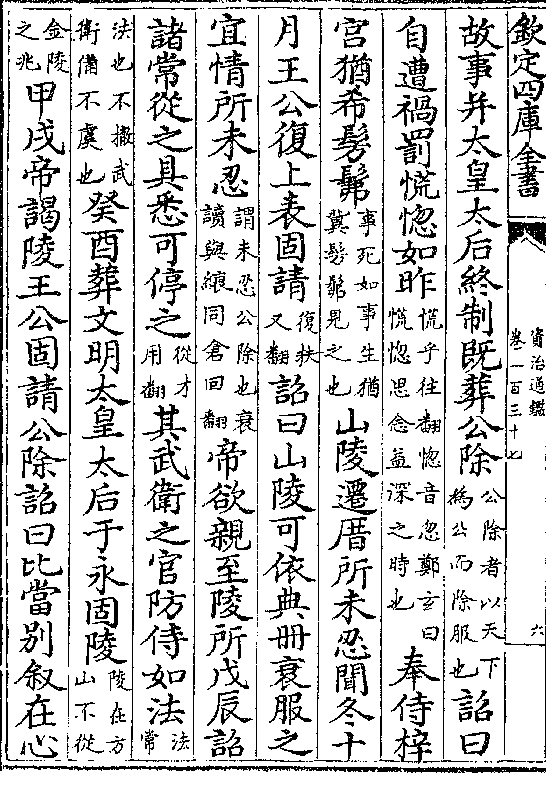 欽定四庫全書 資治通鑑 卷一百三十七 六
故事并太皇太后終制既葬公除公除者以天下為公而除服也詔曰
自遭禍罰慌惚如昨慌乎往翻惚音忽鄭玄曰慌惚思念益深之時也奉侍梓
宮猶希髣髴事死如事生猶冀髣髴見之也山陵遷厝所未忍聞冬十
月王公復上表固請復扶又翻詔曰山陵可依典冊衰服之
宜情所未忍謂未忍公除也衰讀與縗同倉回翻帝欲親至陵所戊辰詔
諸常從之具悉可停之從才用翻其武衛之官防侍如法法常
法也不撤武衛備不虞也癸酉葬文明太皇太后于永固陵陵在方山不從
金陵之兆甲戌帝謁陵王公固請公除詔曰比當別叙在心